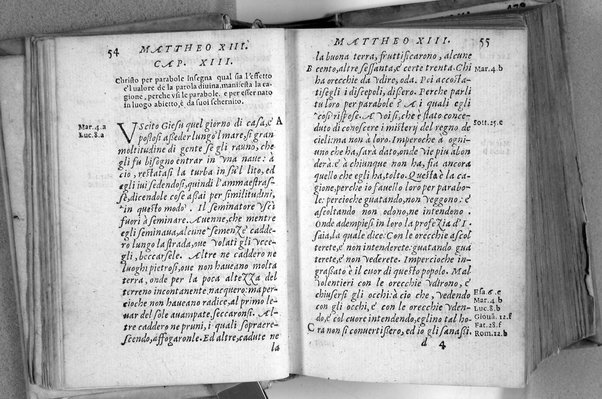 54
MATTHEO XIII.
CAP. XIII.
Christo per parabole insegna qual sia l'effetto
e'l ualore de la parola diuina, manifesta la ca
gione, perche vsi le parabole. e per esser nato
in luogo abietto, è da suoi schernito.
Mar.4.a
Luc.8.a
VScito Giesu quel giorno di casa, è A
postosi a seder lungo'l mare, si gran
moltitudine di gente se gli rauno, che
gli fu bisogno entrar in vna naue: à
cio, restatasi la turba in su'l lito, ed
egli iui sedendosi, quindi l'ammaestras-
se, dicendole cose assai per similitudini,
in questo modo. Il seminatore vsci
fuori à seminare. Auenne, che mentre
egli seminaua, alcune semenze cadde-
ro lungo la strada, oue volati gli vcce-
gli, beccarsele. Altre ne caddero ne
luoghi pietrosi, oue non haueano molta
terra, onde per la poca altezza del
terreno incontanente nacquero: ma per
cioche non haueano radice, al primo le-
uar del sole auampate, seccaronsi. Al-
tre caddero ne pruni, i quali sopracre-
scendo, affogaronle. Ed altre, caddero ne
la
MATTHEO XIII.
55
la buona terra, fruttificarono, alcune
B cento, altre sessanta, è certe trenta. Chi
ha orecchie da vdire, oda. Poi accosta-
tisegli i discepoli, dissero. Perche parli
tu loro per parabole? A i quali egli
cosi rispose. A voi si, che è stato conce-
duto di conoscere i misterij del regno de
cieli: ma non à loro. Imperoche a ogni-
uno che ha, sarà dato, onde vie piu abon
derà: è à chiunque non ha, sia ancora
quello che egli ha, tolto. Questa è la ca-
gione, perche io fauello loro per parabo-
le: percioche guatando, non veggono: è
ascoltando non odono, ne intendono.
Onde adempiesi in loro la profezia d'I-
saia, la quale dice: Con le orecchie ascol
terete, è non intenderete: guatando gua
terete, è non vederete. Impercioche in-
grassato è il cuor di questo popolo. Mal
volentieri con le orecchie vdirono, è
chiusersi gli occhi: à cio che, vedendo
con gli occhi, è con le orecchie vden-
do, è col cuore intendendo, eglino tal ho-
C ra non si conuertissero, ed io gli sanassi.
Mar.4.b
Sott.25.e
Esa.6.e
Mar.4.b
Luc.8.b
Gioua.12.f
Fat.28.f
Rom.12.b
d 4